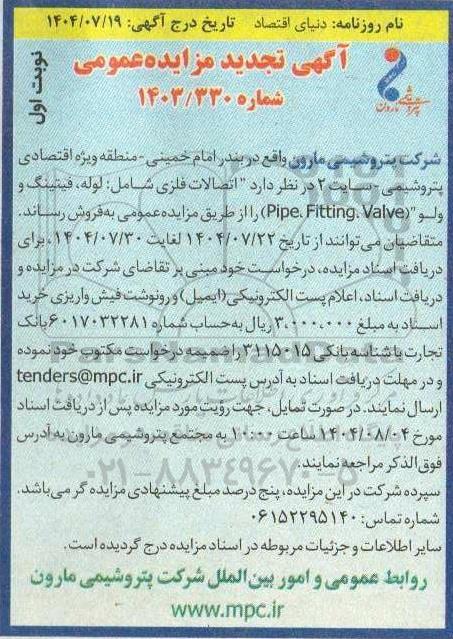 نام روزنامه: دنیای اقتصاد تاریخ درج آگهی: ۱۴۰۴/۰۷/۱۹
آگهی تجدید مزایده‌عمومی
شماره ۱۴۰۳/۳۳۰
نوبت اول
پتروشیمی مارون
شرکت پتروشیمی مارون واقع در بندر امام خمینی - منطقه ویژه اقتصادی
پتروشیمی - سایت ۲ در نظر دارد " اتصالات فلزی شامل: لوله، فیتینگ و
ولو "(Pipe. Fitting. Valve) را از طریق مزایده عمومی به‌فروش رساند.
متقاضیان می‌توانند از تاریخ ۱۴۰۴/۰۷/۲۲ لغایت ۱۴۰۴/۰۷/۳۰، برای
دریافت اسناد مزایده، درخواست خود مبنی بر تقاضای شرکت در مزایده و
دریافت اسناد، اعلام پست الکترونیکی (ایمیل) و رونوشت فیش واریزی خرید
اسناد به مبلغ ۳،۰۰۰،۰۰۰ ریال به‌حساب شماره ۶۰۱۷۰۳۲۲۸۱ بانک
تجارت با شناسه بانکی ۳۱۱۵۰۱۵ را ضمیمه درخواست مکتوب خود نموده
و در مهلت دریافت اسناد به آدرس پست الکترونیکی tenders@mpc.ir
ارسال نمایند. در صورت تمایل، جهت رؤیت مورد مزایده پس از دریافت اسناد
مورخ ۱۴۰۴/۰۸/۰۴ ساعت ۱۰:۰۰ به مجتمع پتروشیمی مارون به آدرس
فوق‌الذکر مراجعه نمایند.
۰۲۱-۸۸۳۴۹۶۷۰-۵
سپرده شرکت در این مزایده، پنج درصد مبلغ پیشنهادی مزایده گر می‌باشد.
شماره تماس: ۰۶۱۵۲۲۹۵۱۴۰
سایر اطلاعات و جزئیات مربوطه در اسناد مزایده درج گردیده است.
روابط عمومی و امور بین‌الملل شرکت پتروشیمی مارون
www.mpc.ir